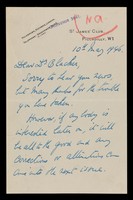 NA
St James' Club,
Piccadilly, W1
10th May 1946.
Dear Dr Blacker,
Sorry to hear you news,
but many thanks for the trouble
you have taken.
However, if anybody is
interested later on, it will
be all to the good and any
corrections or alterations can
come into the next issue.